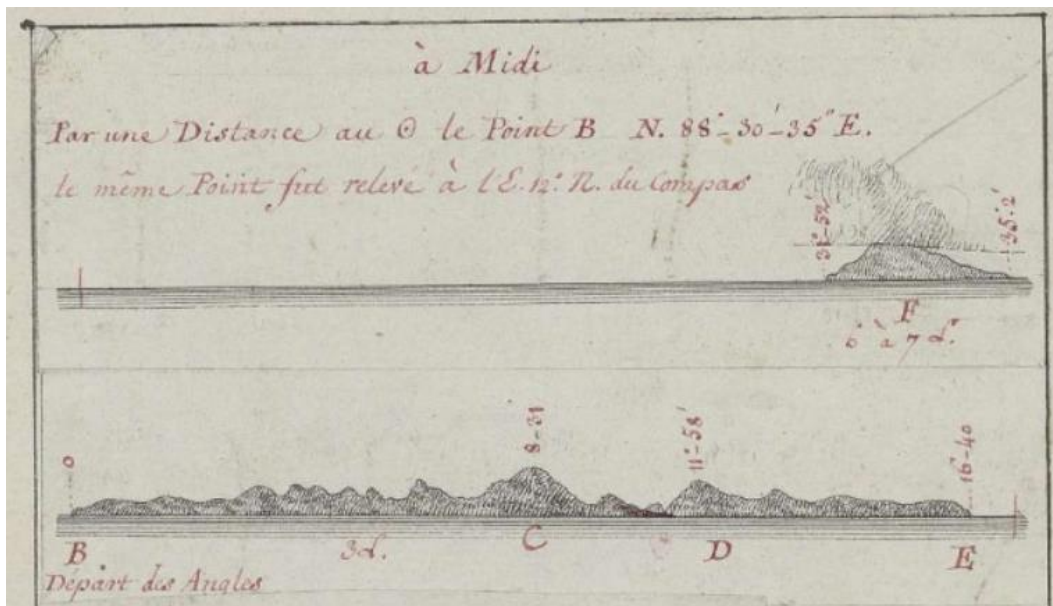 à Midi
Par une Distance au ☉ le Point B N. 88°-30'-35" E.
le même Point fut relevé à l'E. 12°. N. du Compas
31°-52'
35°.2'
F
6 à 7 d.
0
8-31
11°-58'
16°-40
B 3d. C D E
Départ des Angles